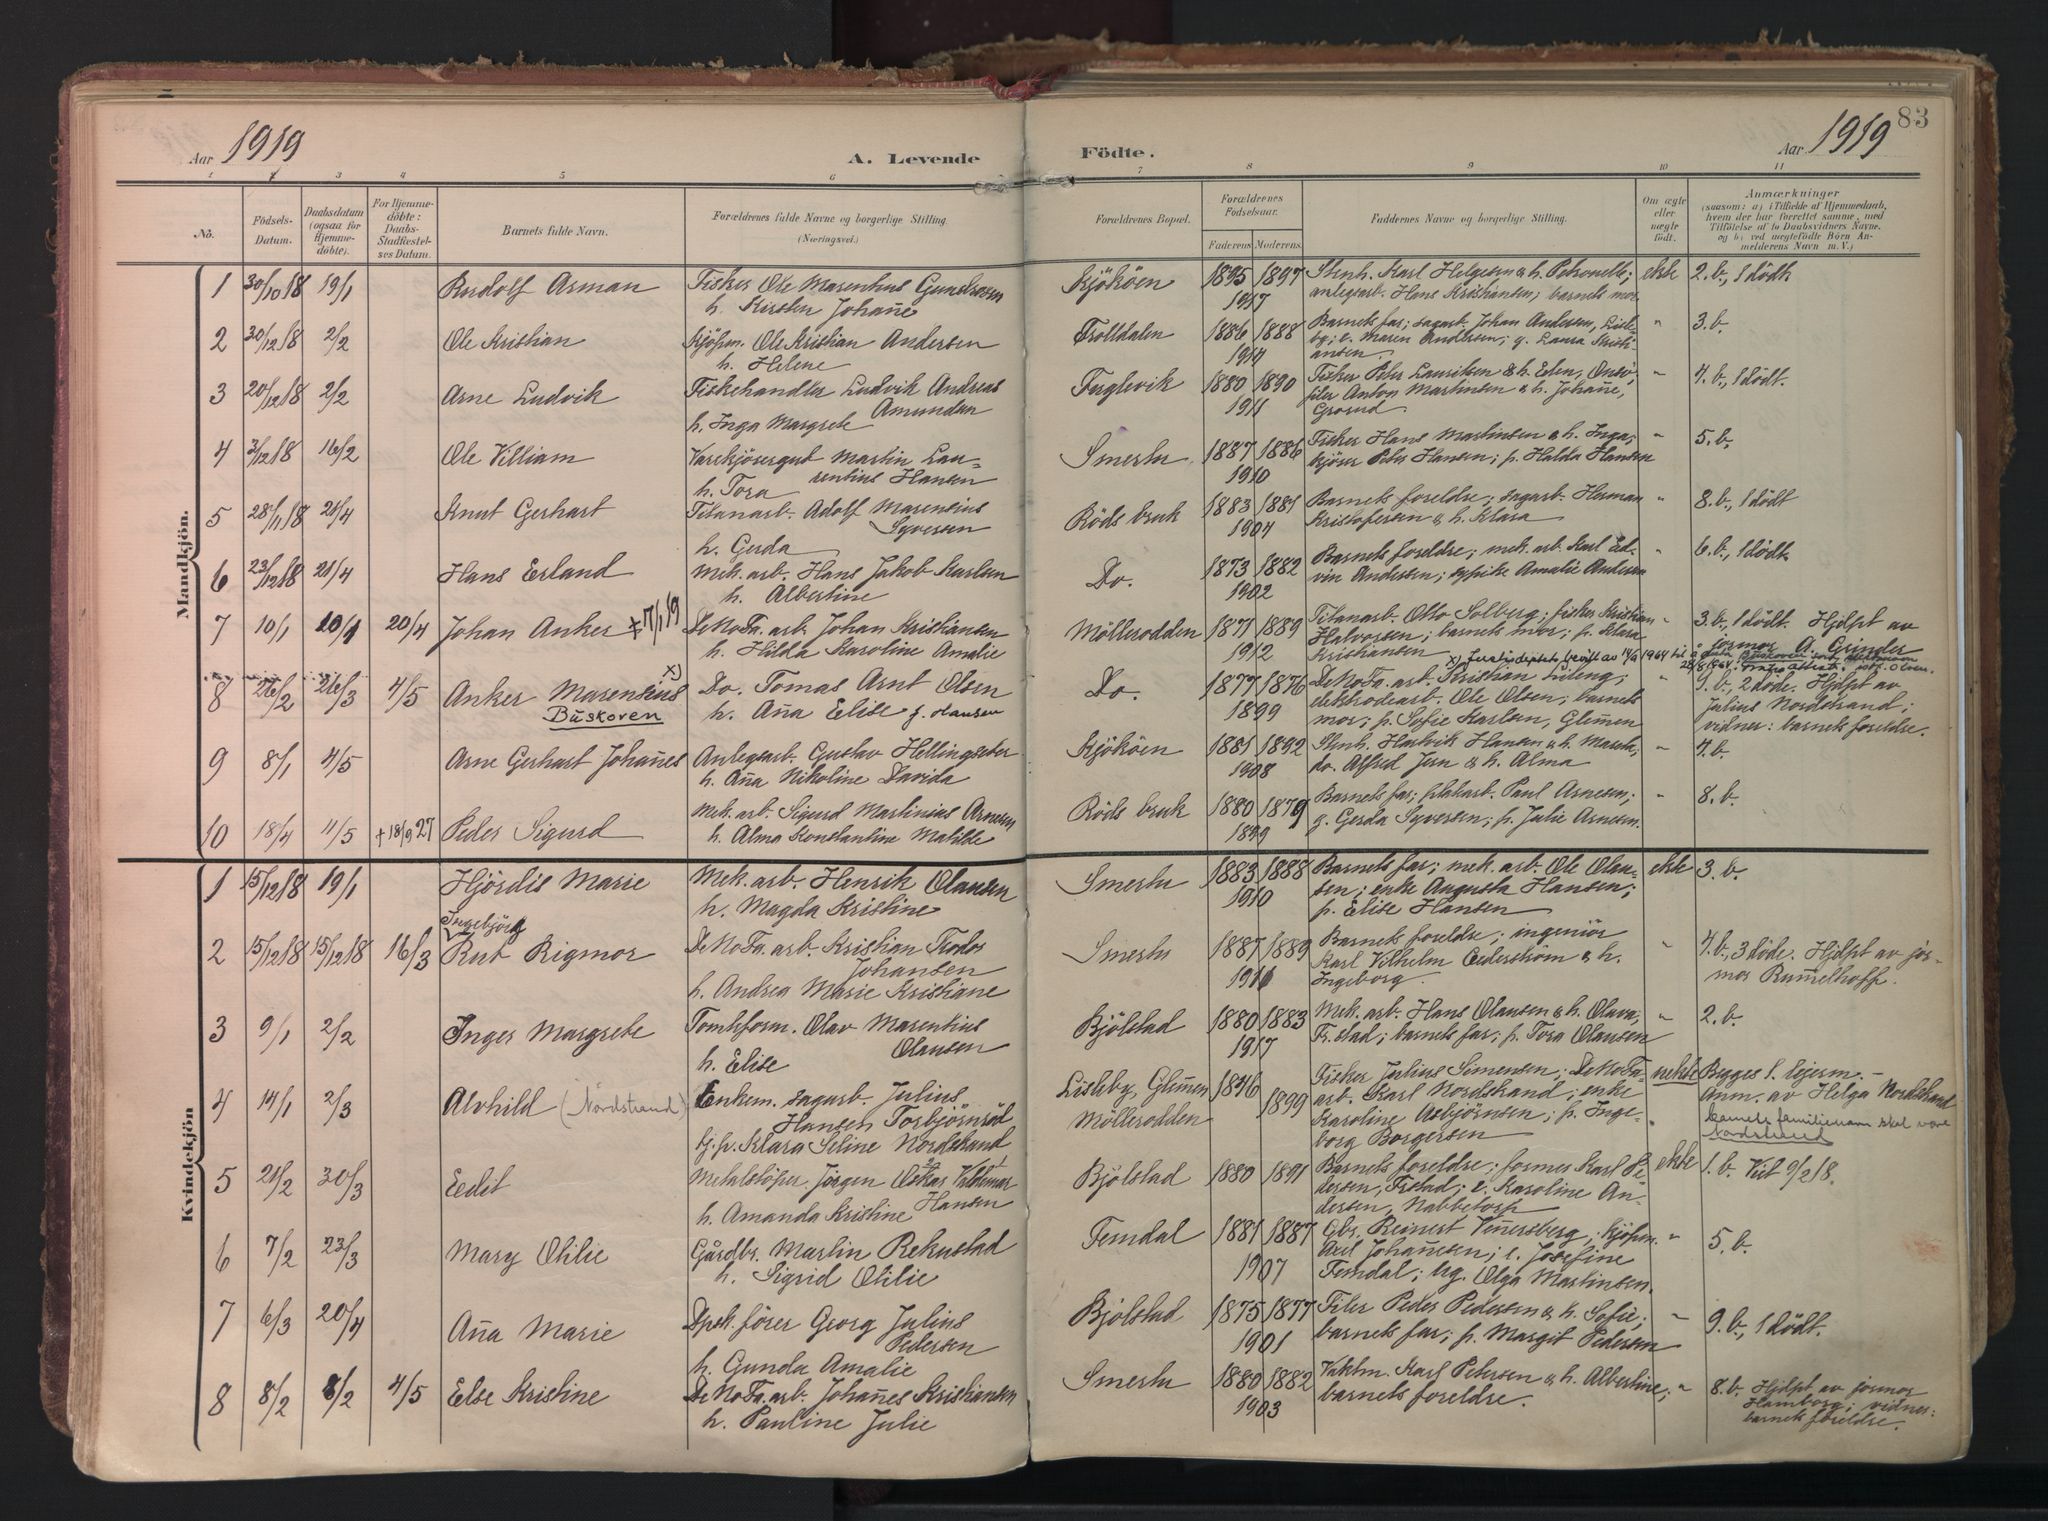 83
Aar 1919
A. Levende
Födte.
Aar 1919
1 2 3 4 5 6 7 8 9 10 11
No.
Födsels-
Datum.
Daabsdatum
(ogsaa for
Hjemme-
döbte).
For Hjemme-
döbte:
Daabs-
Stadfæstel-
ses Datum.
Barnets fulde Navn.
Forældrenes fulde Navne og borgerlige Stilling.
(Næringsvei.)
Forældrenes Bopæl.
Forældrenes
Födselsaar.
Faderens Moderens
Faddernes Navne og borgerlige Stilling.
Om ægte
eller
uægte
födt.
Anmærkninger
(saasom: a) i Tilfælde af Hjemmedaab,
hvem der har forrettet samme, med
Tilföielse af to Daabsvidners Navne,
og b) ved uægtefödte Börn An-
melderens Navn m. V.)
Mandkjön.
1 30/10 18 19/1 Rudolf Arman
Fisker Ole Marenius Gundersen
h. Kirsten Johanne
Kjököen 1895 1897
1917
Stenh. Karl Helgesen & h. Petronelle;
anlegsarb. Hans Kristiansen; barnets mor
ekte 2. b., 1 dödt
2 30/12 18 2/2 Ole Kristian
Kjöpm. Ole Kristian Andersen
h. Helene
Trolldalen 1886 1888
1914
Barnets far; sagarb. Johan Andersen, Lisle-
by; e. Maren Andersen; g. Laura Kristi-
ansen.
" 3. b.
3 20/12 18 2/2 Arne Ludvik
Fiskehandler Ludvik Andreas
Amundsen
h. Inga Margrete
Fuglevik 1880 1890
1911
Fisker Peter Lauritsen & h. Eben, Onsö;
filer Anton Martinsen & h. Johanne,
" 4. b., 1 dödt.
4 3/12 18 16/2 Ole Villiam
Martin Lau-
rentius Hansen
h. Tora
Smertu 1887 1886
1910
Fisker Hans Martinsen & h. Inga;
kjörer Peter Hansen; p. Halda Hansen
" 5. b.
5 28/11 18 21/4 Knut Gerhart
Titanarb. Adolf Marensius
Syversen
h. Gerda
Röds bruk 1883 1881
1904
Barnets foreldre; sagarb. Herman
Kristofersen & h. Klara
" 8. b., 1 dödt
6 23/12 18 21/4 Hans Erland
Mek. arb. Hans Jakob Karlsen
h. Albertine
Do. 1873 1882
1902
Barnets foreldre; mek. arb. Karl Ed-
vin Andersen; Amalie Andersen
" 6. b., 1 dödt
7 10/1 20/1 20/4 Johan Anker + 17/1 19
DeNoFa. arb. Johan Kristiansen
h. Hilda Karoline Amalie
Möllerodden 1871 1889
1912
Titanarb. Otto Solberg; fisker Kristian
Halvorsen; barnets mor; p. Klara
Kristiansen
" 3. b., 1 dödt. Hjdpt av
jormor A. Grinder
8 26/2 26/3 4/5 Anker Marensius x)
Buskoven
Do. Tomas Arnt Olsen
h. Anna Elise f. Hansen
Do. 1877 1876
1899
DeNoFa. arb. Kristian
elektrodearb. Ole Olsen; barnets
mor; p. Sofie Karlsen, Glemmen
" 9. b., 2 döde. Hjdpt av
Julius Nordstrand;
vidner: barnets foreldre.
9 8/1 4/5 Arne Gerhart Johannes
Anlegsarb. Gustav Hellingseter
h. Anna Nikoline Davida
Kjököen 1881 1892
1908
Stenh. Hartvik Hansen & h. Marta;
do. Alfred Jern & h. Alma
" 4. b.
10 18/4 11/5 + 18/9 27 Peder Sigurd
Mek. arb. Sigurd Martinius Arnesen
h. Alma Konstantine Matilde
Röds bruk 1880 1879
1899
Barnets far; platearb. Paul Arnesen;
g. Gerda Syversen; p. Julie Arnesen.
" 8. b.
Kvindekjön
1 15/12 18 19/1 Hjördis Marie
Mek. arb. Henrik Olausen
h. Magda Kristine
Smertu 1883 1888
1910
Barnets far; mek. arb. Ole Olau-
sen; enke Augusta Hansen;
p. Elise Hansen
ekte 3. b.
2 15/12 18 15/12 18 16/3 Ingebjörg
Rut Rigmor
DeNoFa. arb. Kristian Teodor
Johansen
h. Andrea Marie Kristiane
Smertu 1887 1889
1910
Barnets foreldre; ingeniör
Karl Vilhelm Cederström & h.
Ingeborg.
" 4. b., 3 döde. Hjdpt av jor-
mor Rummelhoff.
3 9/1 2/2 Inger Margrete
Tomtform. Olav Marentius
Olausen
h. Elise
Bjölstad 1880 1883
1917
Mek. arb. Hans Olausen & h. Olava,
Fr.stad; barnets far; p. Tora Olausen
" 2. b.
4 14/1 2/3 Alvhild (Nordstrand)
Enkem. sagarb. Julius
Hansen Torbjörnröd
tj.p. Klara Seline Nordstrand
Lisleby, Glemmen 1846
Möllerodden 1899
Fisker Julius Simensen; DeNoFa-
arb. Karl Nordstrand; enke
Karoline Asbjörnsen; p. Inge-
borg Borgersen
uekte Bygges 1. lejerm. –
Anm. av Helga Nordstrand
barnets familienavn skal være
Nordstrand
5 21/2 30/3 Eedit
Metalstöper Jörgen Oskar Valdemar
Hansen
h. Amanda Kristine
Bjölstad 1880 1891
Barnets foreldre; former Karl Pe-
dersen, Frstad; e. Karoline An-
dersen, Nabbetorp
ekte 1. b. Viet 9/2 18.
6 7/2 23/3 Mary Otilie
Gårdbr. Martin Rekustad
h. Sigrid Otilie
Femdal 1881 1887
1907
Gbr. Reinert Vennersberg; kjöpm.
Axel Johannesen; e. Josefine
Femdal; ug. Olga Martinsen.
" 5. b.
7 6/3 20/4 Anna Marie
Dpsk. förer Georg Julius
Pedersen
h. Gunda Amalie
Bjölstad 1875 1877
1901
Filer Peder Pedersen & h. Sofie;
barnets far; p. Margit Pedersen
" 9. b., 1 dödt.
8 8/2 8/2 4/5 Else Kristine
DeNoFa. arb. Johannes Kristiansen
h. Pauline Julie
Smertu 1880 1882
1903
Vaktm. Karl Petersen & h. Albertine;
barnets foreldre.
" 8. b. Hjdpt av jormor
Hamborg; vidner:
barnets foreldre.